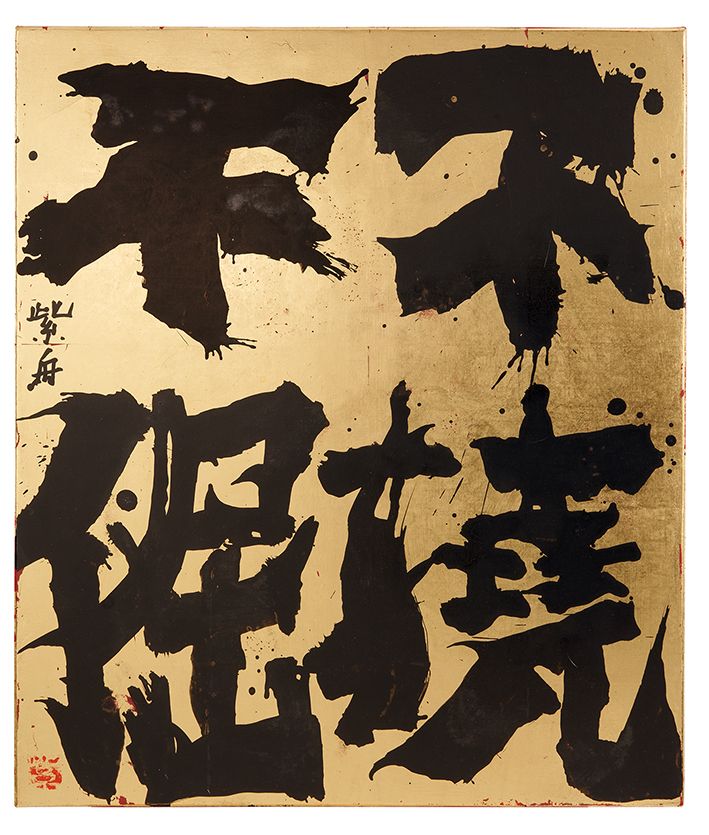 不撓
不倔
紫舟